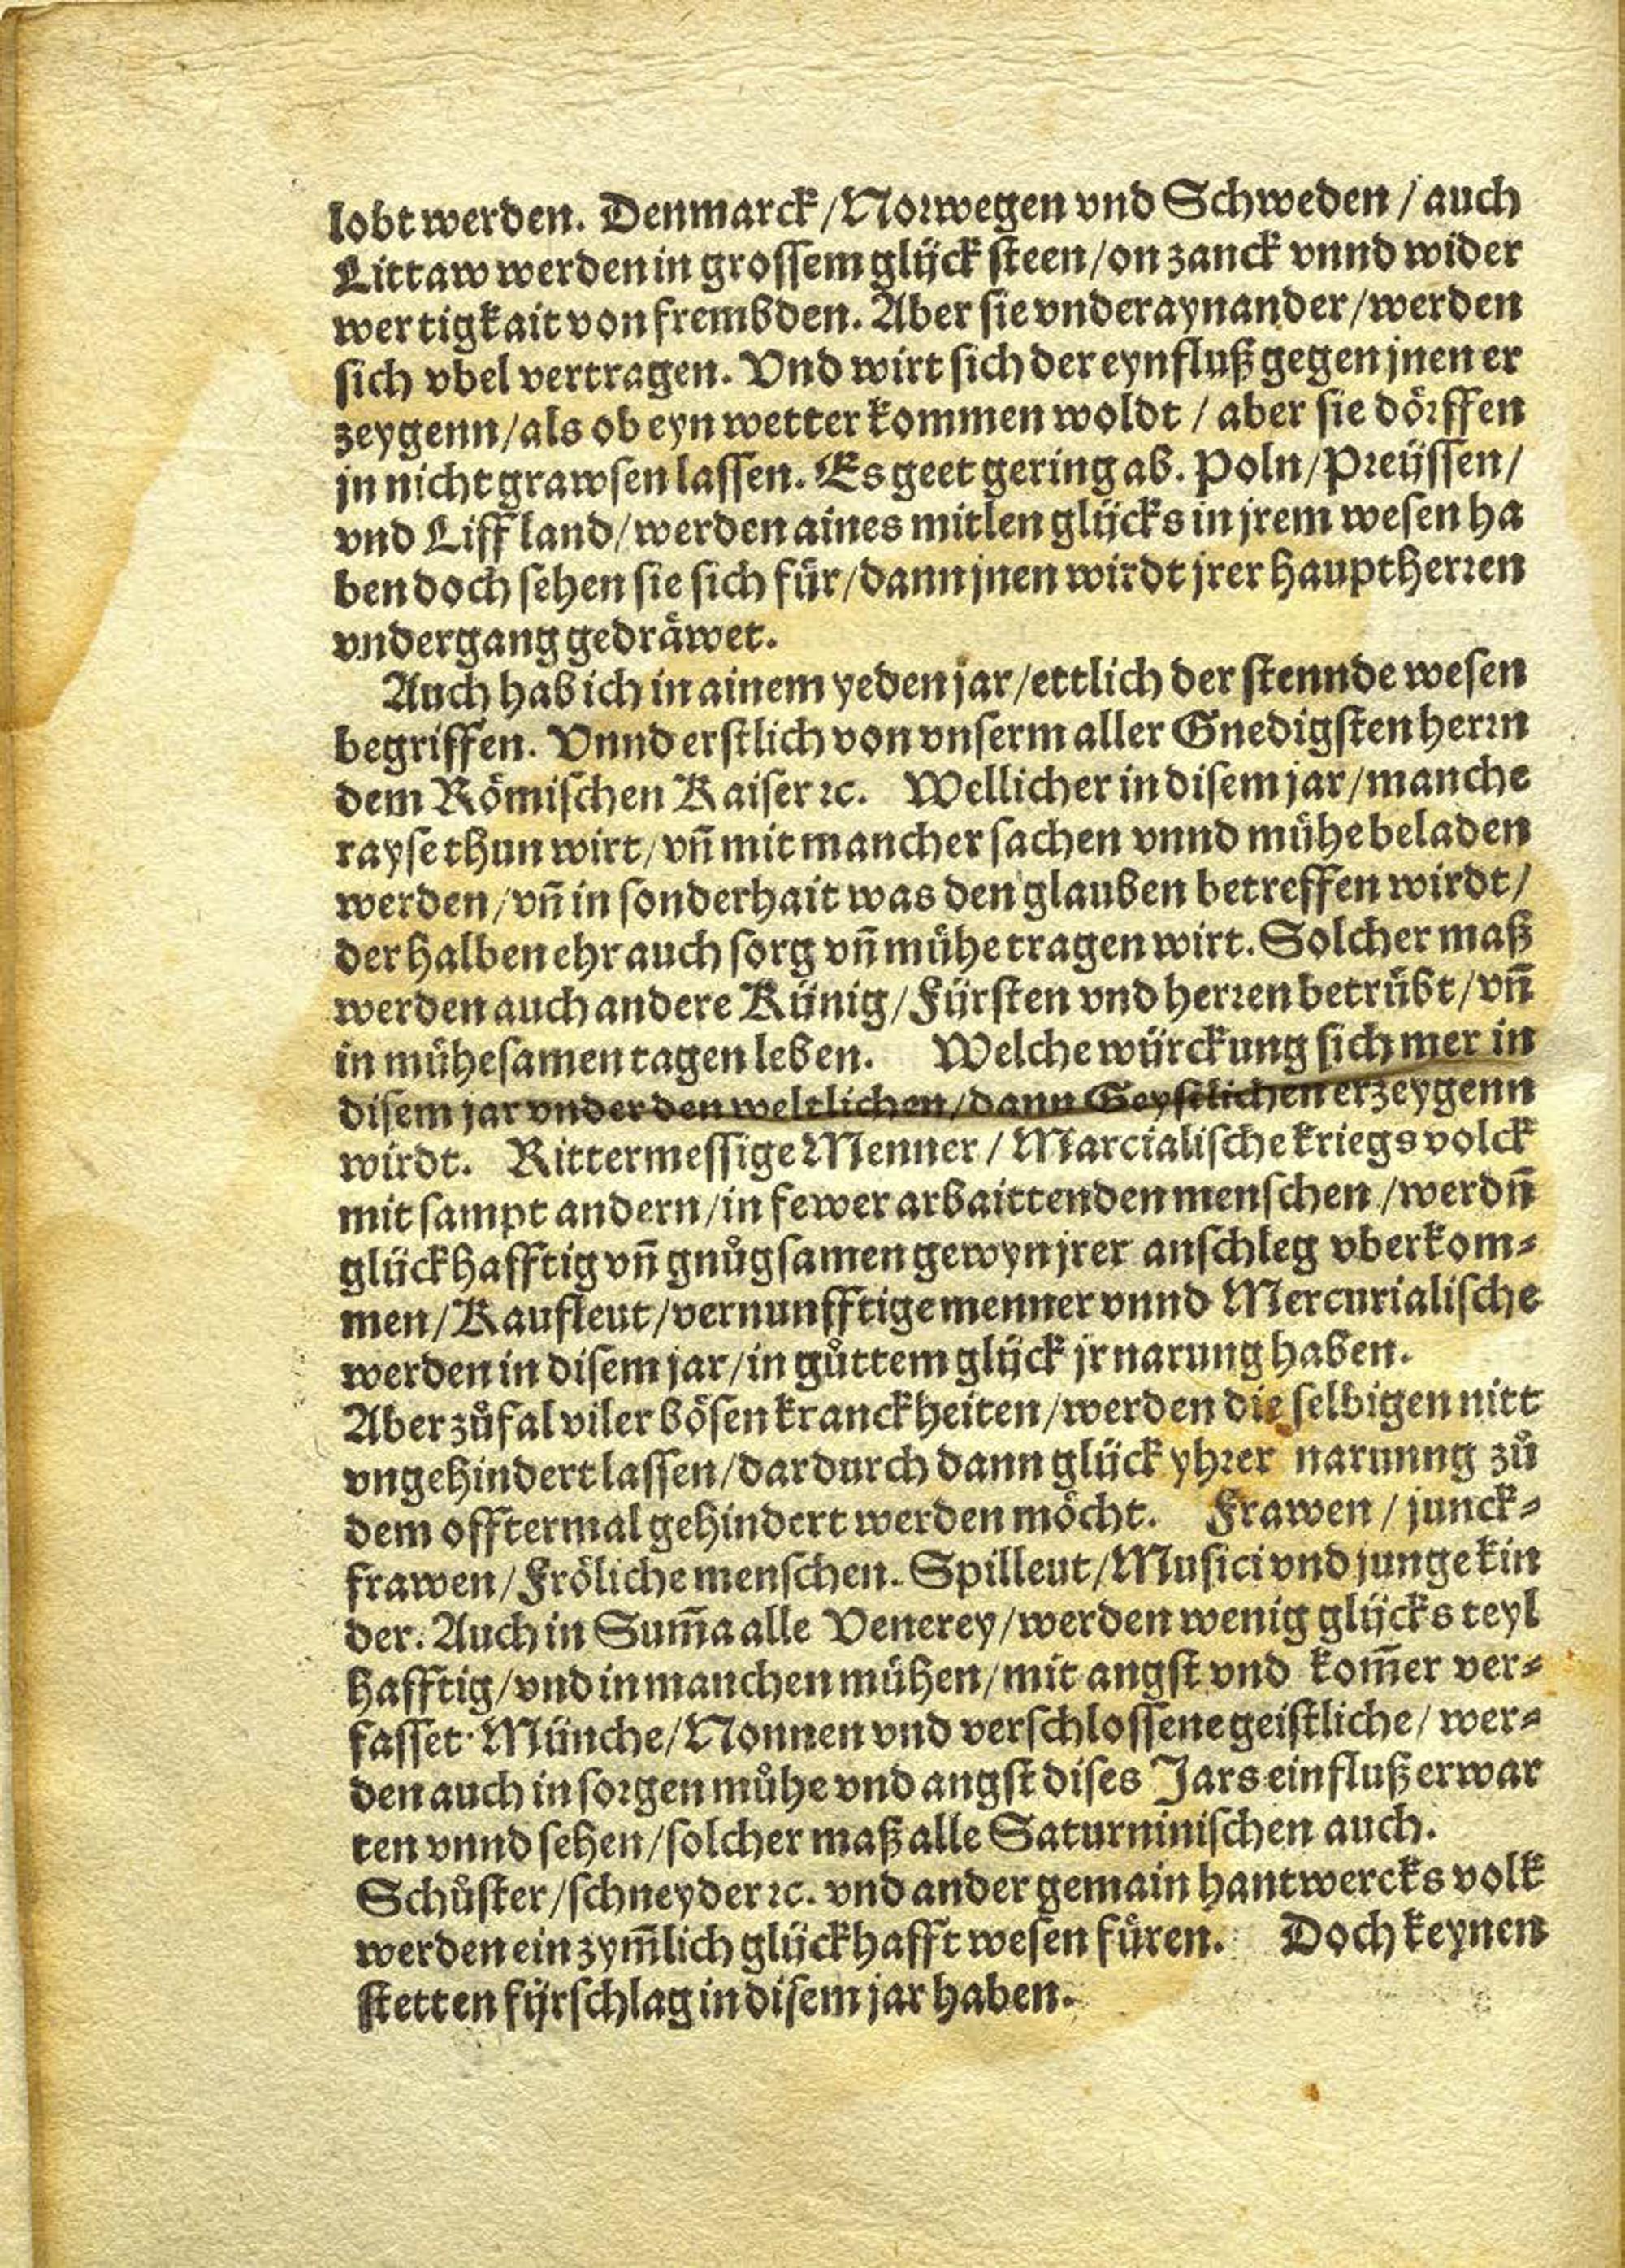 lobt werden. Denmarck / Norwegen vnd Schweden / auch
Littaw werden in grossem glück steen / on zanck vnnd wider
wertigkait von frembden. Aber sie vnderaynander / werden
sich vbel vertragen. Vnd wirt sich der eynfluß gegen jnen er
zeygenn / als ob eyn wetter kommen woldt / aber sie dörffen
jn nicht grawsen lassen. Es geet gering ab. Poln / Preüssen /
vnd Liffland / werden aines mitlen glücks in jrem wesen ha
ben doch sehen sie sich für / dann jnen wirdt jrer hauptherren
vndergang gedräwet.
Auch hab ich in ainem yeden jar / ettlich der stennde wesen
begriffen. Vnnd erstlich von vnserm aller Gnedigsten herrn
dem Römischen Kaiser ꝛc. Wellicher in disem jar / manche
rayse thun wirt / vñ mit mancher sachen vnnd mühe beladen
werden / vñ in sonderhait was den glauben betreffen wirdt /
der halben ehr auch sorg vñ mühe tragen wirt. Solcher maß
werden auch andere Künig / Fürsten vnd herren betrübt / vñ
in mühesamen tagen leben. Welche würckung sich mer in
disem jar vnder den weltlichen / dann Geystlichen erzeygenn
wirdt. Rittermessige Menner / Marcialische kriegs volck
mit sampt andern / in fewer arbaittenden menschen / werdñ
glückhafftig vñ gnůgsamen gewyn jrer anschleg vberkom⸗
men / Kaufleut / vernunfftige menner vnnd Mercurialische
werden in disem jar / in gůttem glück jr narung haben.
Aber zůfal viler bösen kranckheiten / werden die selbigen nitt
vngehindert lassen / dardurch dann glück yhrer narunng zů
dem offtermal gehindert werden möcht. Frawen / junck⸗
frawen / Fröliche menschen. Spilleut / Musici vnd junge kin
der. Auch in Sum̃a alle Venerey / werden wenig glücks teyl
hafftig / vnd in manchen mühen / mit angst vnd kom̃er ver⸗
fasset. Münche / Nonnen vnd verschlossene geistliche / wer⸗
den auch in sorgen můhe vnd angst dises Jars einfluß erwar
ten vnnd sehen / solcher maß alle Saturninischen auch.
Schůster / schneyder ꝛc. vnd ander gemain hantwercks volk
werden ein zym̃lich glückhafft wesen füren. Doch keynen
stetten fürschlag in disem jar haben.